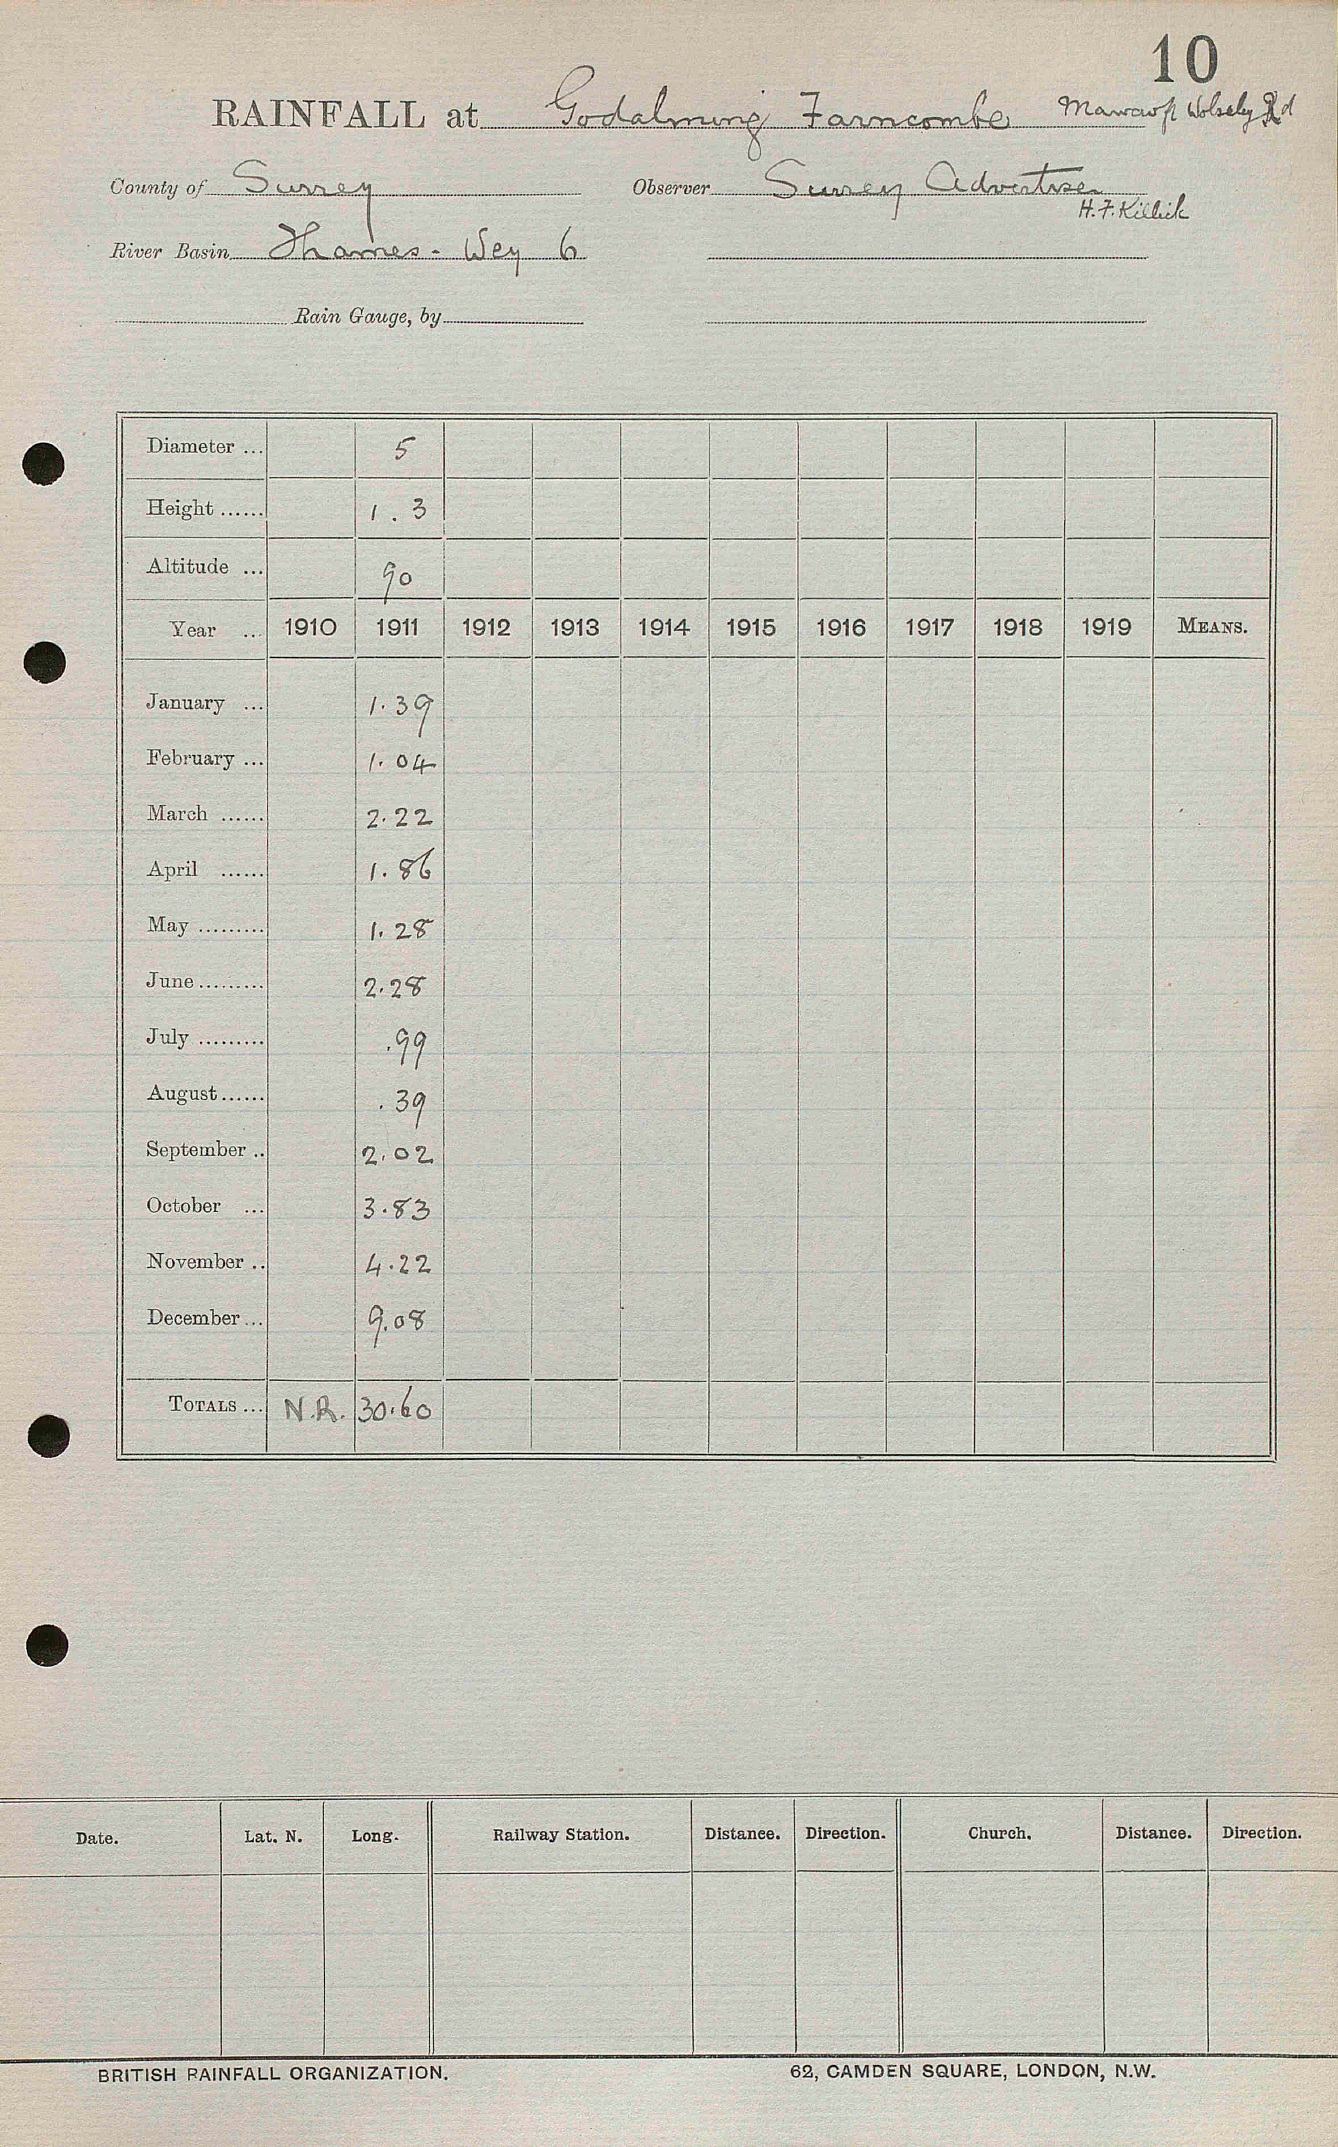 10
RAINFALL at Godalming Farncombe Wolsely Rd
County of Surrey Observer Surrey Advertiser
H. F. Killick
River Basin Thames - Wey 6
Rain Gauge, by
Diameter ... 5
Height ...... 1.3
Altitude ... 90
Year ... 1910 1911 1912 1913 1914 1915 1916 1917 1918 1919 MEANS.
January ... 1.39
February ... 1.04
March ...... 2.22
April ...... 1.86
May ......... 1.28
June ......... 2.28
July ......... .99
August ...... .39
September .. 2.02
October ... 3.83
November .. 4.22
December ... 9.08
TOTALS ... N.R. 30.60
Date. Lat. N. Long. Railway Station. Distance. Direction. Church. Distance. Direction.
BRITISH RAINFALL ORGANIZATION. 62, CAMDEN SQUARE, LONDON, N.W.